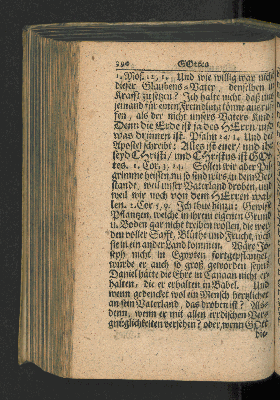 390 GOttes
1. Mos. 12, 1. Und wie willig war nicht
dieser Glaubens-Vater, denselben in
Krafft zu setzen? Ich halte nicht, daß man
jemand für einen Fremdling könne ausruf-
fen, als der nicht unsers Vaters Kind.
Denn die Erde ist ja des HErrn und
was drinnen ist. Psalm 24. 1. Und der
Apostel schreibt: Alles ist euer, und ihr
seyd Christi, und Christus ist GOt-
tes. 1. Cor. 3.
Sollen wir aber Pil-
grimme heissen, so sind wirs in dem Ver-
stande, weil unser Vaterland droben, und
weil wir noch von dem HErren wal-
len. 2. Cor. 5, 6. Ich thue hinzu: Gewisse
Pflantzen, welche in ihrem eigenen Grund
u. Boden gar nicht treiben wollen, die wer-
den voller Safft, Blüthe und Frucht, wenn
sie in ein ander Land kommen. Wäre Jo-
seph nicht in Egypten fortgepflantzet,
würde er auch so groß geworden seyn?
Daniel hätte die Ehre in Canaan nicht er-
halten, die er erhalten in Babel. Und
wenn gedencket wol ein Mensch hertzlicher
an sein Vaterland, das droben ist? Als
denn, wenn er mit allen irrdischen Ver-
gnüglichkeiten versehen? oder, wenn GOtt
die-